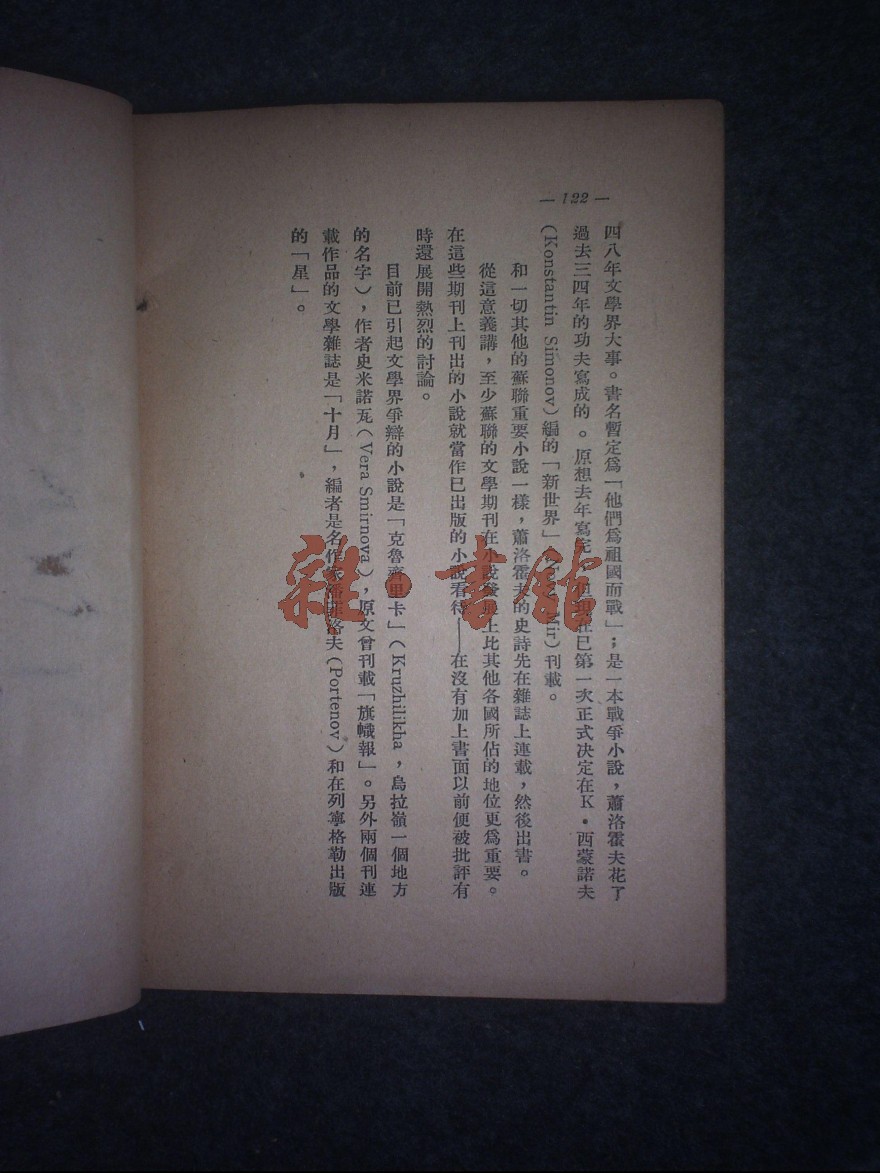 — 122 —
四八年文學界大事。書名暫定爲「他們爲祖國而戰」；是一本戰爭小說，蕭洛霍夫花了
過去三四年的功夫寫成的。原想去年寫完，但現在已第一次正式決定在K·西蒙諾夫
(Konstantin Simonov)編的「新世界」 Mir)刊載。
和一切其他的蘇聯重要小說一樣，蕭洛霍夫的史詩先在雜誌上連載，然後出書。
從這意義講，至少蘇聯的文學期刊在小說發展上比其他各國所佔的地位更爲重要。
在這些期刊上刊出的小說就當作已出版的小說看待——在沒有加上書面以前便被批評有
時還展開熱烈的討論。
目前已引起文學界爭辯的小說是「克魯齊里卡」(Kruzhilikha，烏拉嶺一個地方
的名字)，作者史米諾瓦(Vera Smirnova)，原文曾刊載「旗幟報」。另外兩個刊連
載作品的文學雜誌是「十月」，編者是名作家 洛夫(Portenov)和在列寧格勒出版
的「星」。
雜·書館